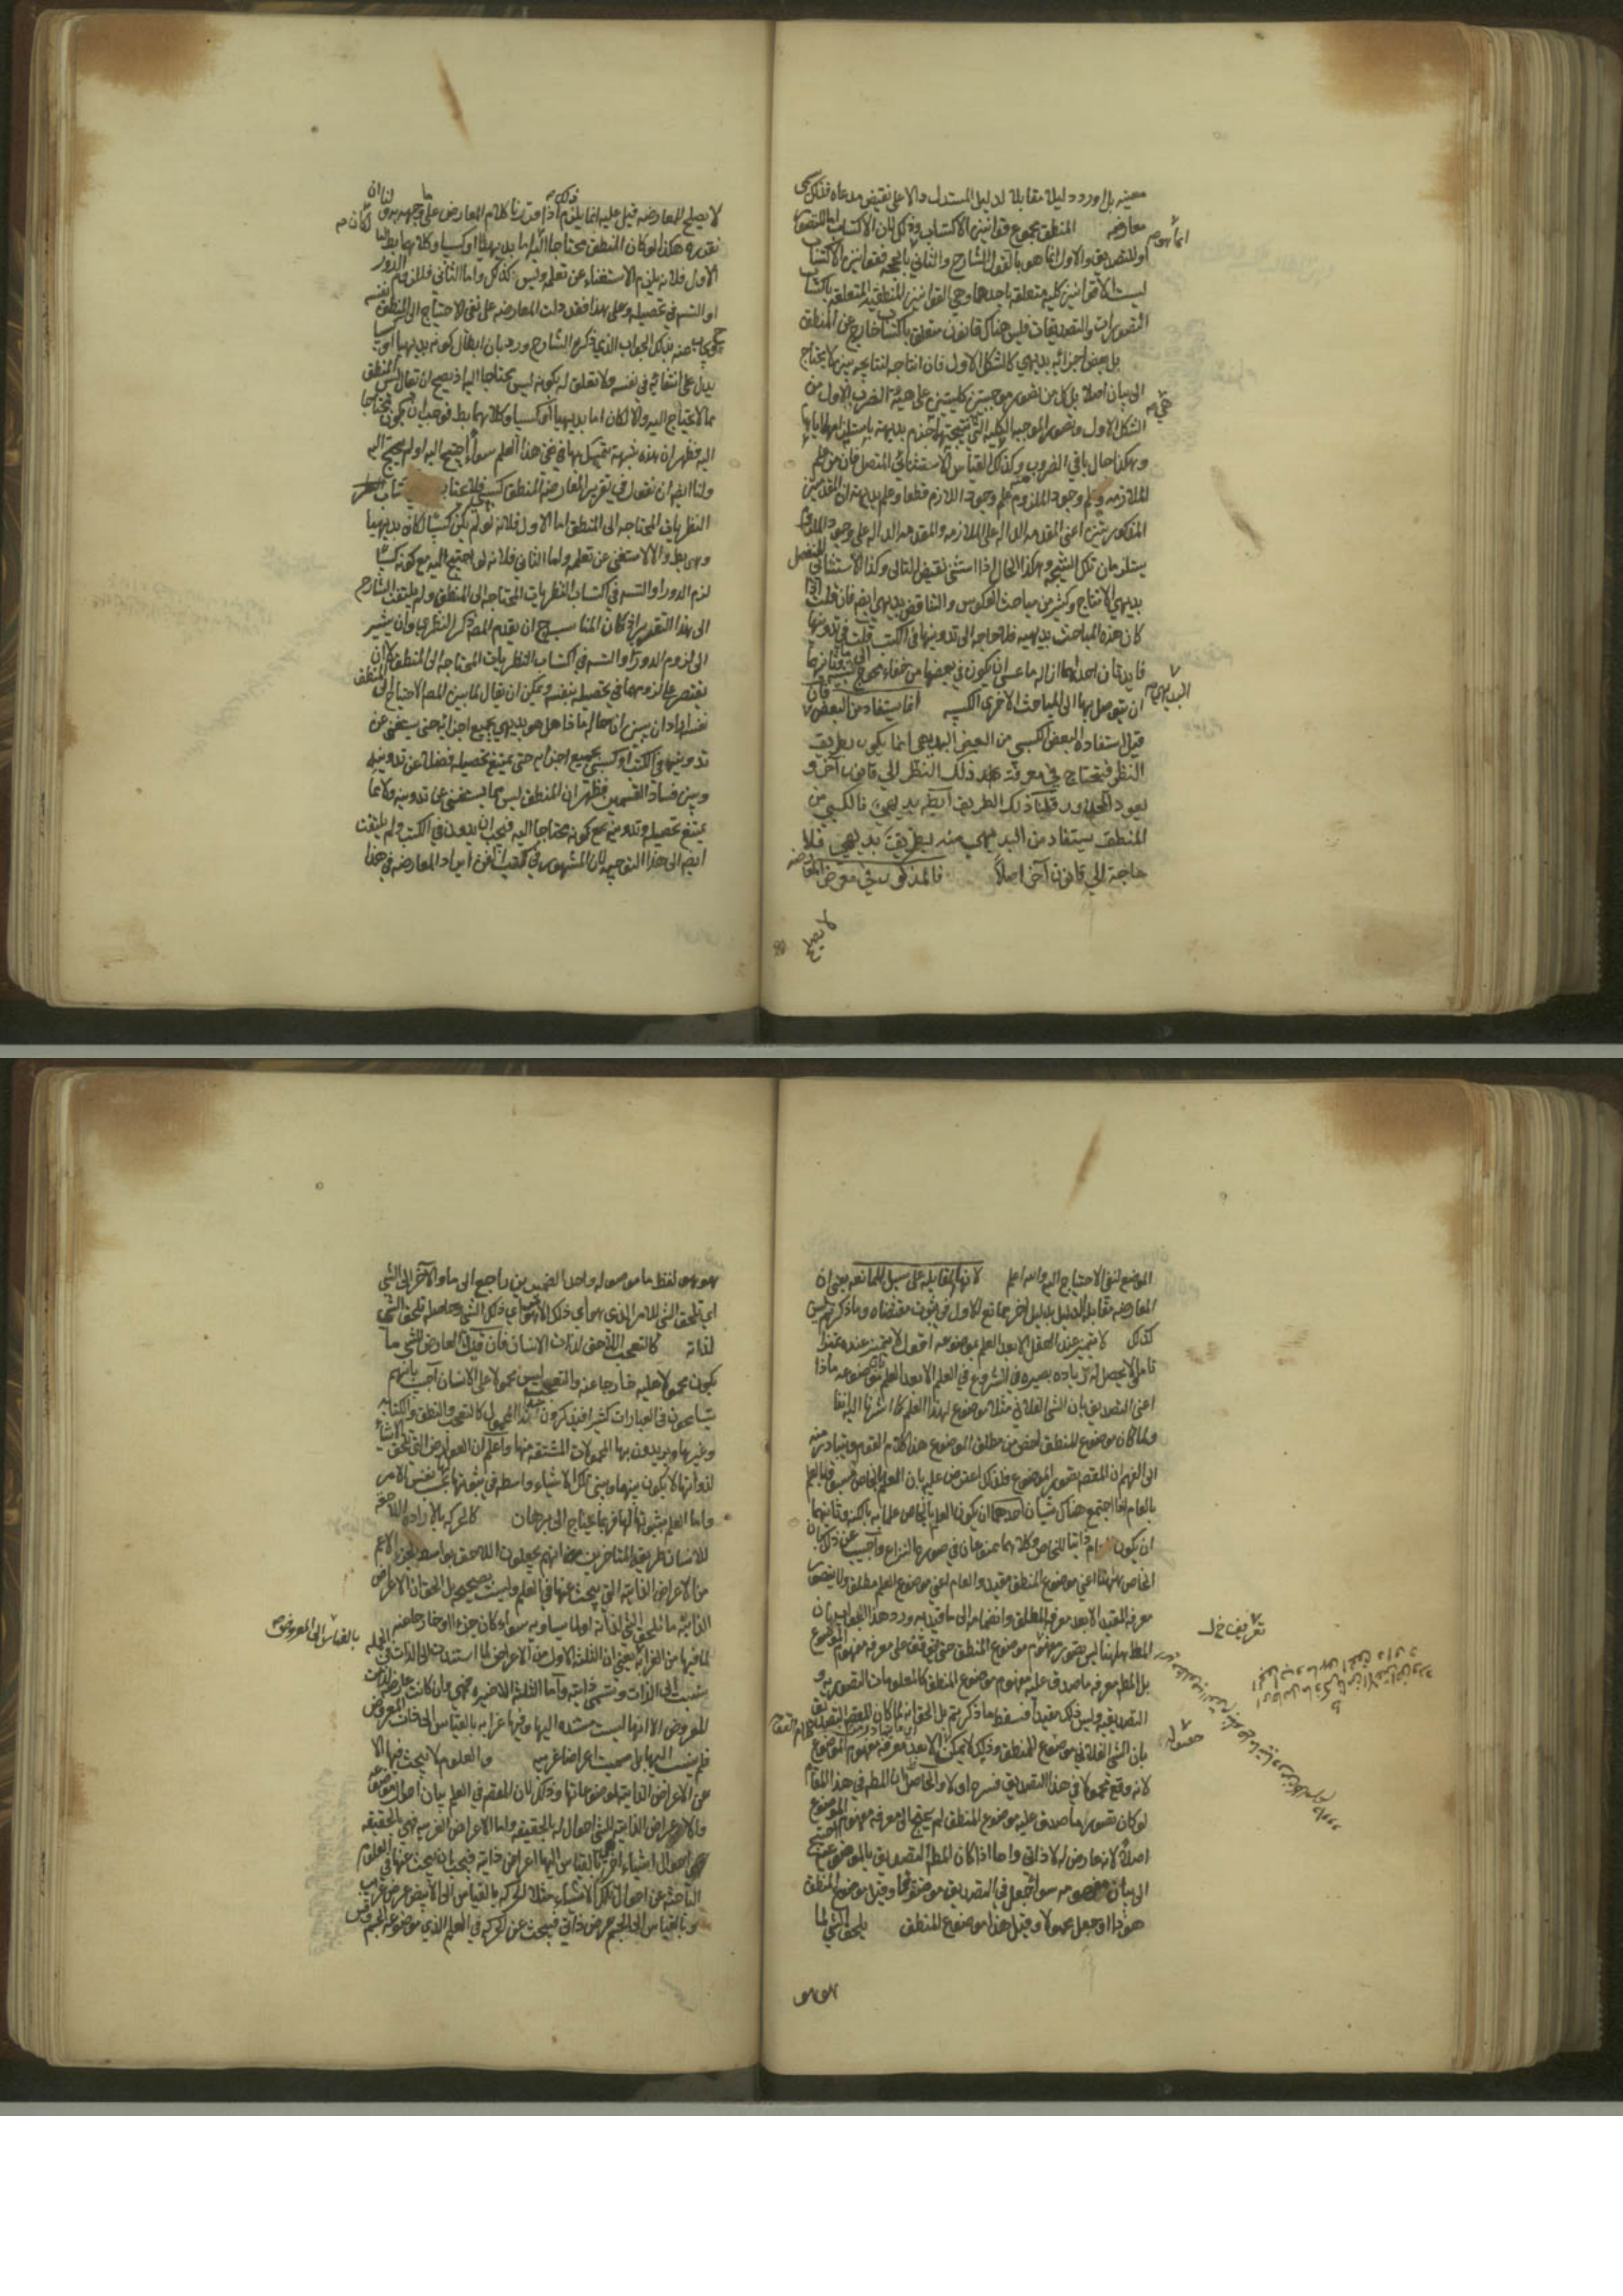 معينة بل اورد دليلا مقابلا لدليل المستدل دالا على نقيض مدعاه فذلك يسمى
معارضة المنطق مجموع قوانين الاكتساب وذلك لان الاكتساب اما للتصور
او للتصديق والاول انما هو بالقول الشارح والثاني بالحجة فقوانين الاكتساب
ليست الا قوانين كلية متعلقة باحدهما وهي القوانين المنطقية المتعلقة باكتساب
التصورات والتصديقات فليس هناك قانون متعلق باكتساب خارج عن المنطق
بل بعض اجزائه بديهي كالشكل الاول فان انتاجه لنتايجه بين لا يحتاج
الى بيان اصلا بل كل من تصور موجبتين كليتين على هيئة الضرب الاول من
الشكل الاول وتصور الموجبة الكلية التي نتيجتهما جزم بديهة باستلزامهما اياها
وهكذا حال باقي الضروب وكذلك القياس الاستثنائي المتصل فان من علم
الملازمة وعلم وجود الملزوم علم وجود اللازم قطعا وعلم بديهة ان المقدمتين
المذكورتين اعني المقدمة الدالة على الملازمة والمقدمة الدالة على وجود الملزوم
يستلزمان تلك النتيجة وهكذا الحال اذا استثنى نقيض التالي وكذا الاستثنائي المنفصل
بديهي الانتاج وكثير من مباحث العكوس والتناقض بديهي ايضا فان قلت اذا
كان هذه المباحث بديهية فلا حاجة الى تدوينها في الكتب قلت في تدوينها
فايدتان احديهما ازالة ما عسى ان يكون في بعضها من خفاء محوج الى تنبيه وثانيتهما
ان يتوصل بها الى المباحث الاخرى الكسبية انما يستفاد من البعض فان
قيل استفادة البعض الكسبي من البعض البديهي انما يكون بطريق
النظر فيحتاج في معرفة ذلك النظر الى قانون آخر و
يعود المحذور قلنا ذلك الطريق ايضا بديهي فالكسبي من
المنطق يستفاد من البديهي منه بطريق بديهي فلا
حاجة الى قانون آخر اصلا فالمذكور في معرض المعارضة
لا يصلح
لا يصلح للمعارضة قيل عليه انما يلزم ذلك اذا قررنا كلام المعارض على ما وجهه
تقريره هكذا لو كان المنطق محتاجا اليه لكان اما بديهيا او كسبيا وكلاهما بط اما
الاول فلانه يلزم الاستغناء عن تعلمه وليس كذلك واما الثاني فللزوم الدور
او التسه في تحصيله وعلى هذا فقد دلت المعارضة على نفي الاحتياج الى المنطق نفسه
بديهيا او كسبيا
يدل على انتفائه في نفسه ولا تعلق له بكونه ليس محتاجا اليه اذ يصح ان يقال ليس المنطق
مما لا يحتاج اليه والا لكان اما بديهيا او كسبيا وكلاهما بط فوجب ان يكون محتاجا
اليه فظهر ان هذه شبهة يتمسك بها في نفي هذا العلم سواء احتيج اليه او لم يحتج اليه
ولنا ايضا ان نقول في تقرير المعارضة المنطق
النظريات المحتاجة الى المنطق اما الاول فلانه لو لم يكن كسبيا لكان بديهيا
وهو بط والا لاستغنى عن تعلمه واما الثاني فلانه لو احتيج اليه مع كونه كسبيا
لزم الدور او التسه في اكتساب النظريات المحتاجة الى المنطق ولم يلتفت الشارح
الى هذا التقدير
الى لزوم الدور او التسه في اكتساب النظريات المحتاجة الى المنطق لا ان
يقتصر على لزومهما في تحصيله بنفسه ويمكن ان يقال لما بين المص الاحتياج الى المنطق
نفسه اراد ان يبين ان حاله ماذا هل هو بديهي بجميع اجزائه حتى يستغنى عن
تدوينه في الكتب او كسبي بجميع اجزائه حتى يمتنع تحصيله فضلا عن تدوينه
وبين فساد القسمين فظهر ان المنطق ليس مما يستغنى عن تدوينه ولا مما
يمتنع تحصيله وتدوينه مع كونه محتاجا اليه فيجب ان يدون في الكتب ولم يلتفت
ايضا الى هذا التوجيه لان المشهور في كتب الفن ايراد المعارضة في هذا
الموضع لنفي الاحتياج اليه والله اعلم لانها المقابلة على سبيل الممانعة يعني ان
المعارضة مقابلة الدليل بدليل آخر ممانع للاول في ثبوت مقتضاه وما ذكرتم ليس
كذلك لا يتميز عند العقل الا بعد العلم بموضوعه اقول لا يتميز عنده
تاما ولا يحصل له زيادة بصيرة في الشروع في العلم الا بعد العلم بموضوعه ماذا
اعني التصديق بان الشي الفلاني مثلا موضوع لهذا العلم كما اشرنا اليه آنفا
ولما كان موضوع المنطق اخص من مطلق الموضوع هذا كلام القوم ويتبادر منه
الى الفهم ان المقصد تصور الموضوع فلذلك اعترض عليه بان العلم بالخاص مسبوق بالعلم
بالعام اذا اجتمع هناك شيان احدهما ان يكون العلم بالخاص علما به بالكنه وثانيهما
ان يكون العام ذاتيا للخاص وكلاهما ممنوعان في صورة النزاع واجيب عن ذلك بان
الخاص ههنا اعني موضوع المنطق مقيد والعام اعني موضوع العلم مطلق ولا يتصور
معرفة المقيد الا بعد معرفة المطلق وانضمامه الى ما قيد به ورد هذا الجواب بان
المط ههنا ليس تصور مفهوم موضوع المنطق حتى يتوقف على معرفة مفهوم الموضوع
بل المط معرفة ما صدق عليه مفهوم موضوع المنطق كالمعلومات التصورية و
التصديقية وليس ذلك مقيدا فسقط ما ذكرتم بل الحق انه لما كان المقصد التصديق
بان الشي الفلاني موضوع المنطق وذلك لا يمكن الا بعد معرفة مفهوم الموضوع
لانه وقع محمولا في هذا التصديق فسره اولا والحاصل ان المط في هذا المقام
لو كان تصور ما صدق عليه موضوع المنطق لم يحتج الى معرفة مفهوم الموضوع
اصلا لانه عارض له لا ذاتي واما اذا كان المط التصديق بالموضوعية احتيج
الى بيان مفهومه سواء جعل في التصديق موضوعا وقيل موضوع المنطق
هو هذا او جعل محمولا وقيل هذا موضوع المنطق يلحق الشي لما
هو هو
هو هو لفظ ما موصولة واحد الضميرين راجع الى ما والآخر الى الشي
اي يلحق الشي للامر الذي هو اي ذلك الامر هو اي ذلك الشي وحاصله يلحق الشي
لذاته كالتعجب اللاحق لذات الانسان فان قيل العارض للشي ما
يكون محمولا عليه خارجا عنه والتعجب ليس محمولا على الانسان اجيب بانهم
يتسامحون في العبارات كثيرا فيذكرون مبدأ المحمول كالتعجب والنطق والكتابة
وغيرها ويريدون بها المحمولات المشتقة منها واعلم ان العوارض التي تلحق الاشياء
لذواتها لا يكون بينها وبين تلك الاشياء واسطة في ثبوتها لها بحسب نفس الامر
واما العلم بثبوتها لها فربما يحتاج الى برهان كالحركة بالارادة اللاحقة
للانسان طريقة المتاخرين انهم يجعلون اللاحق بواسطة الجزء الاعم
من الاعراض الذاتية التي يبحث عنها في العلم وليست بصحيح بل الحق ان الاعراض
الذاتية ما يلحق الشي لذاته او لما يساويه سواء كان جزءا له او خارجا عنه
لما فيها من الغرابة يعني ان الثلثة الاول من الاعراض لما استندت الى الذات في الجملة
نسبت الى الذات وتسمى ذاتية واما الثلثة الاخيرة فهي وان كانت عارضة لذات
المعروض الا انها ليست مستندة اليها وفيها غرابة بالقياس الى ذات المعروض
فلم ينسب اليها بل سميت اعراضا غريبة والعلوم لا يبحث فيها الا
عن الاعراض الذاتية لموضوعاتها وذلك لان المقصد في العلم بيان احوال موضوعه
والاعراض الذاتية للشي احوال له بالحقيقة واما الاعراض الغريبة فهي بالحقيقة
احوال اشياء اخر هي بالقياس اليها اعراض ذاتية فيجب ان يبحث عنها في العلوم
الباحثة عن احوال تلك الاشياء مثلا الحركة بالقياس الى الابيض عرض غريب
وبالقياس الى الجسم عرض ذاتي فيبحث عن الحركة في العلم الذي موضوعه الجسم